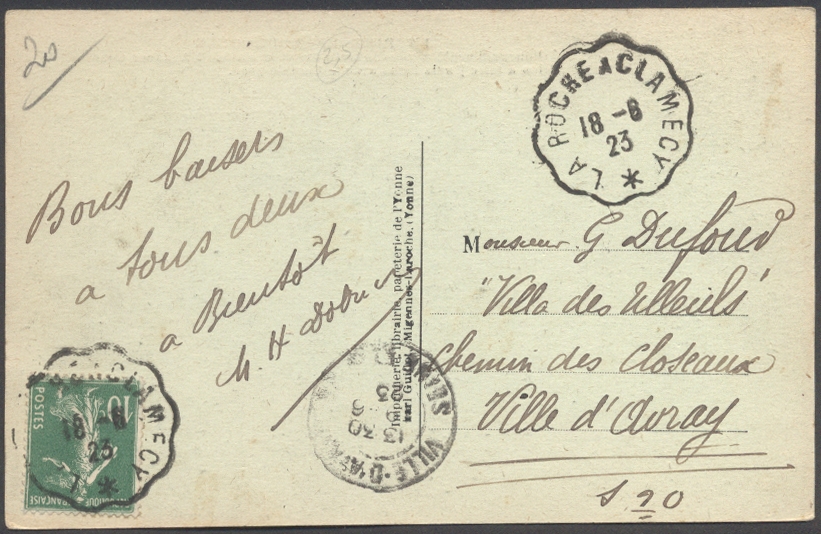 20
2,5
LA ROCHE A CLAMECY
18 - 6
23
Bons baisers
a tous deux
a Bientôt
M. H
Imprimerie, librairie, papeterie de l'Yonne
Migennes-Laroche. (Yonne)
Monsieur G Dufour
"Villa des Tilleuls"
Chemin des Closeaux
Ville d'Avray
S &O
CLAMECY
18 - 6
23
10c
POSTES
FRANÇAISE
VILLE-D'AVRAY
13 30